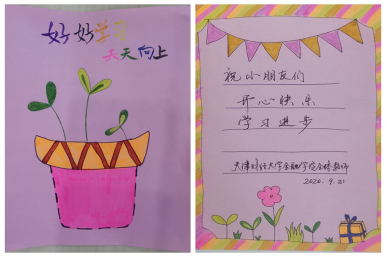 好好学习
天天向上
祝小朋友们
开心快乐
学习进步
天津财经大学金融学院全体教师
2020.9.21